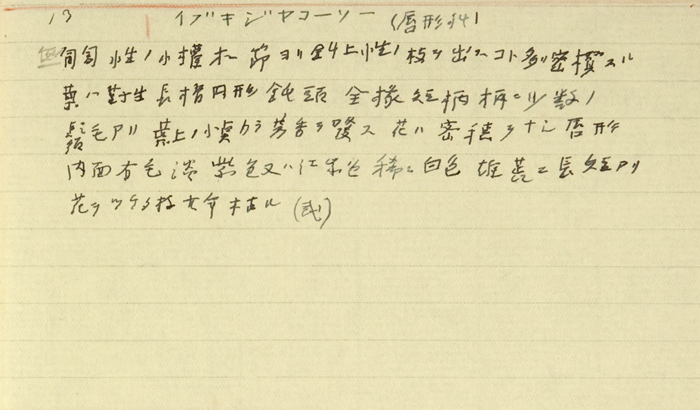 13 イブキジヤコーソー (唇形科)
匍匐性ノ小灌木 節ヨリ斜上性ノ枝ヲ出スコト多ク密攅スル
葉ハ對生長楕円形鈍頭 全縁短柄 柄ニ少数ノ
鬚毛アリ 葉上ノ小点カラ芳香ヲ發ス 花ハ密穂ヲナシ唇形
内面有毛 淡紫色又ハ紅紫色 稀ニ白色 雄蕊ニ長短アリ
花ヲツケタル枝